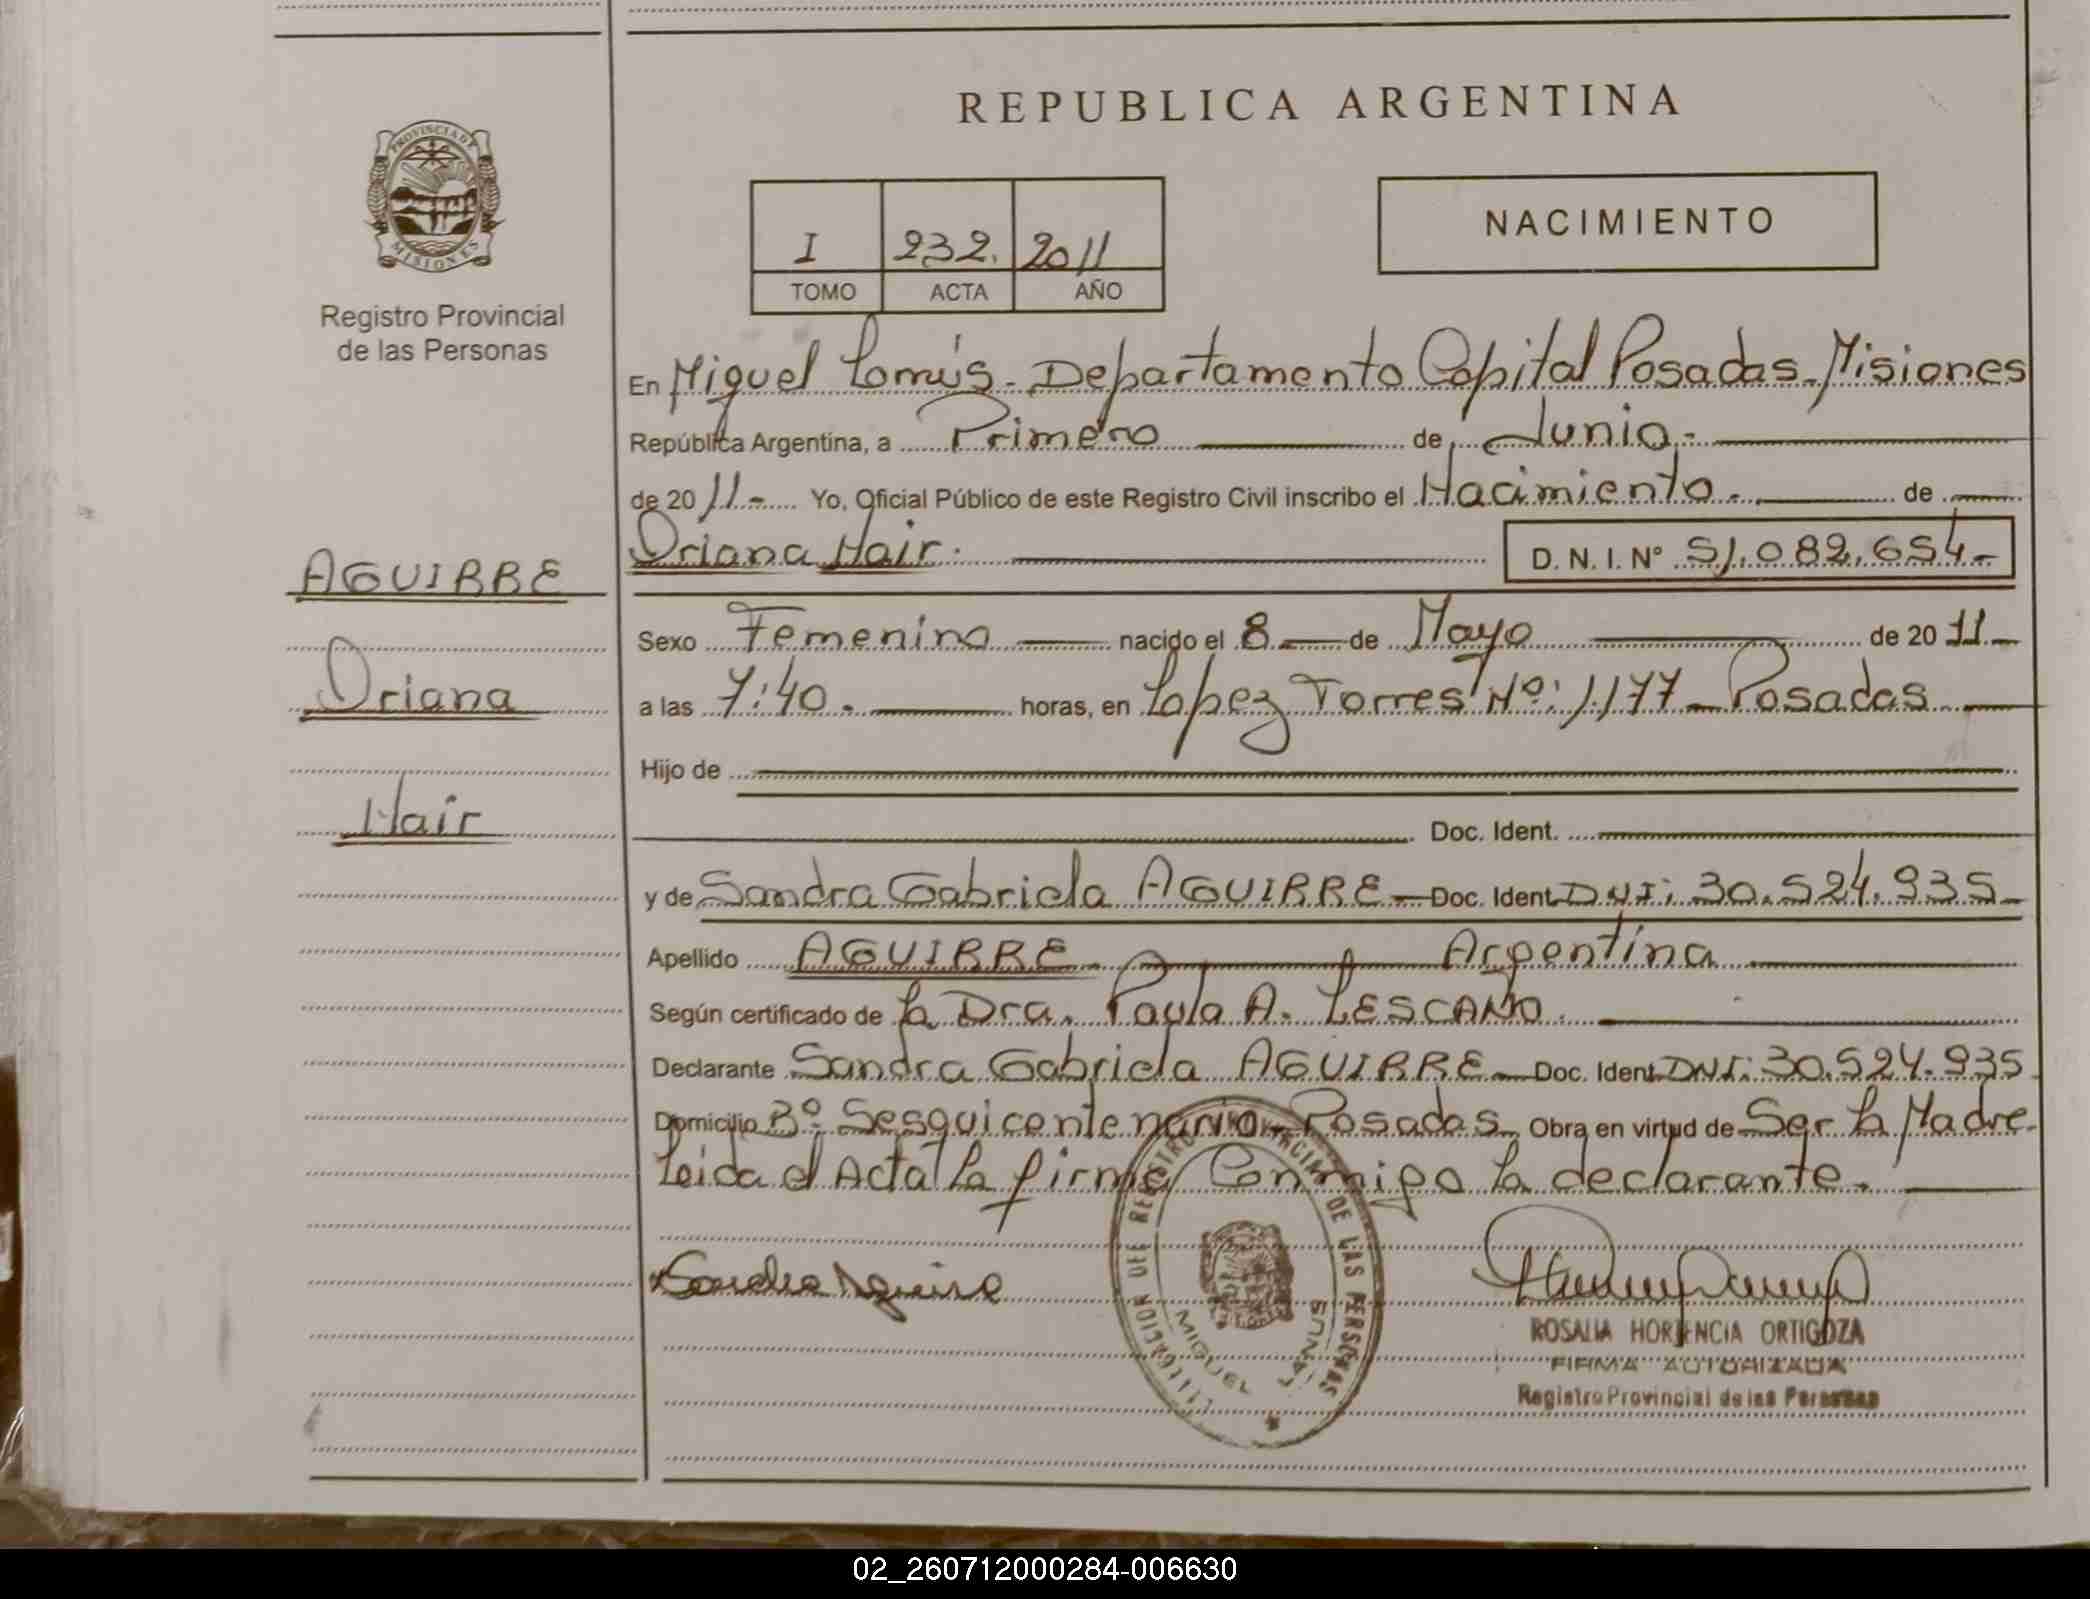 REPUBLICA ARGENTINA
PROVINCIA DE MISIONES
Registro Provincial
de las Personas
NACIMIENTO
I 232. 2011
TOMO ACTA AÑO
En Miguel Lanús - Departamento Capital Posadas - Misiones
República Argentina, a Primero de Junio.-
de 2011.- Yo, Oficial Público de este Registro Civil inscribo el Nacimiento. de
Oriana Nair. D. N. I. Nº 51.082.654.-
AGUIRRE
Oriana
Nair
Sexo Femenino nacido el 8 de Mayo de 2011
a las 7:40. horas, en Lopez Torres Nº: 1177 - Posadas
Hijo de
Doc. Ident.
y de Sandra Gabriela AGUIRRE - Doc. Ident DNI: 30.524.935
Apellido AGUIRRE. Argentina
Según certificado de la Dra. Paula A. LESCANO.
Declarante Sandra Gabriela AGUIRRE - Doc. Ident DNI: 30.524.935
Domicilio Bº Sesquicentenario - Posadas Obra en virtud de Ser la Madre
Leida el Acta la firma Conmigo la declarante.
Sandra Aguirre
DE LAS PERSONAS
MIGUEL LANUS
ROSALIA HORTENCIA ORTIGOZA
FIRMA AUTORIZADA
Registro Provincial de las Personas
02_260712000284-006630